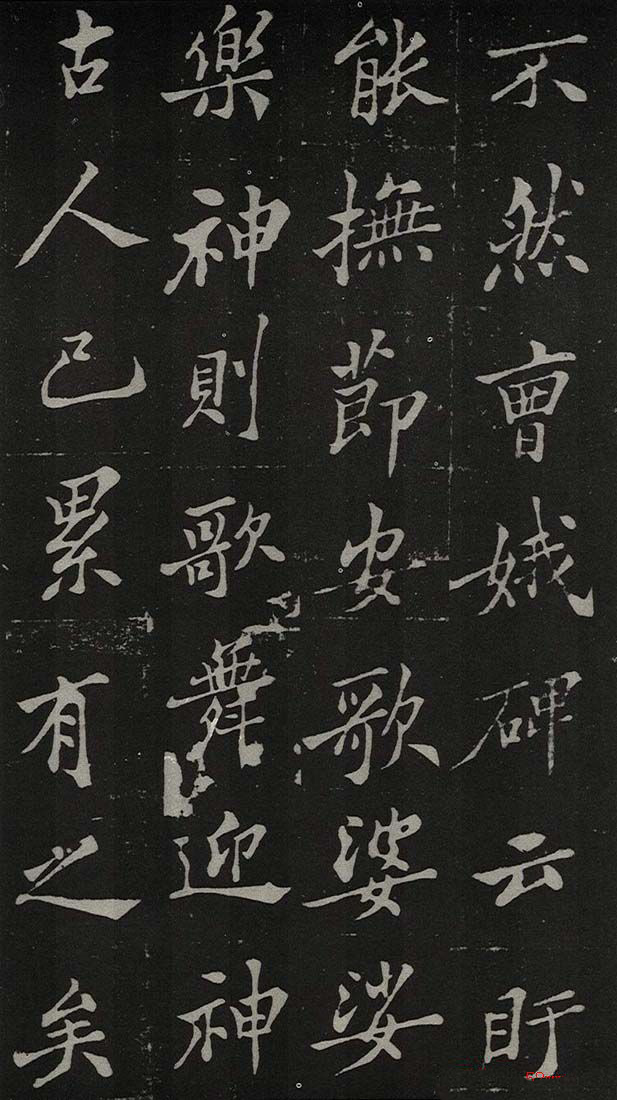 不然曺娥碑云盱
能撫節安歌婆娑
樂神則歌舞迎神
古人已累有之矣